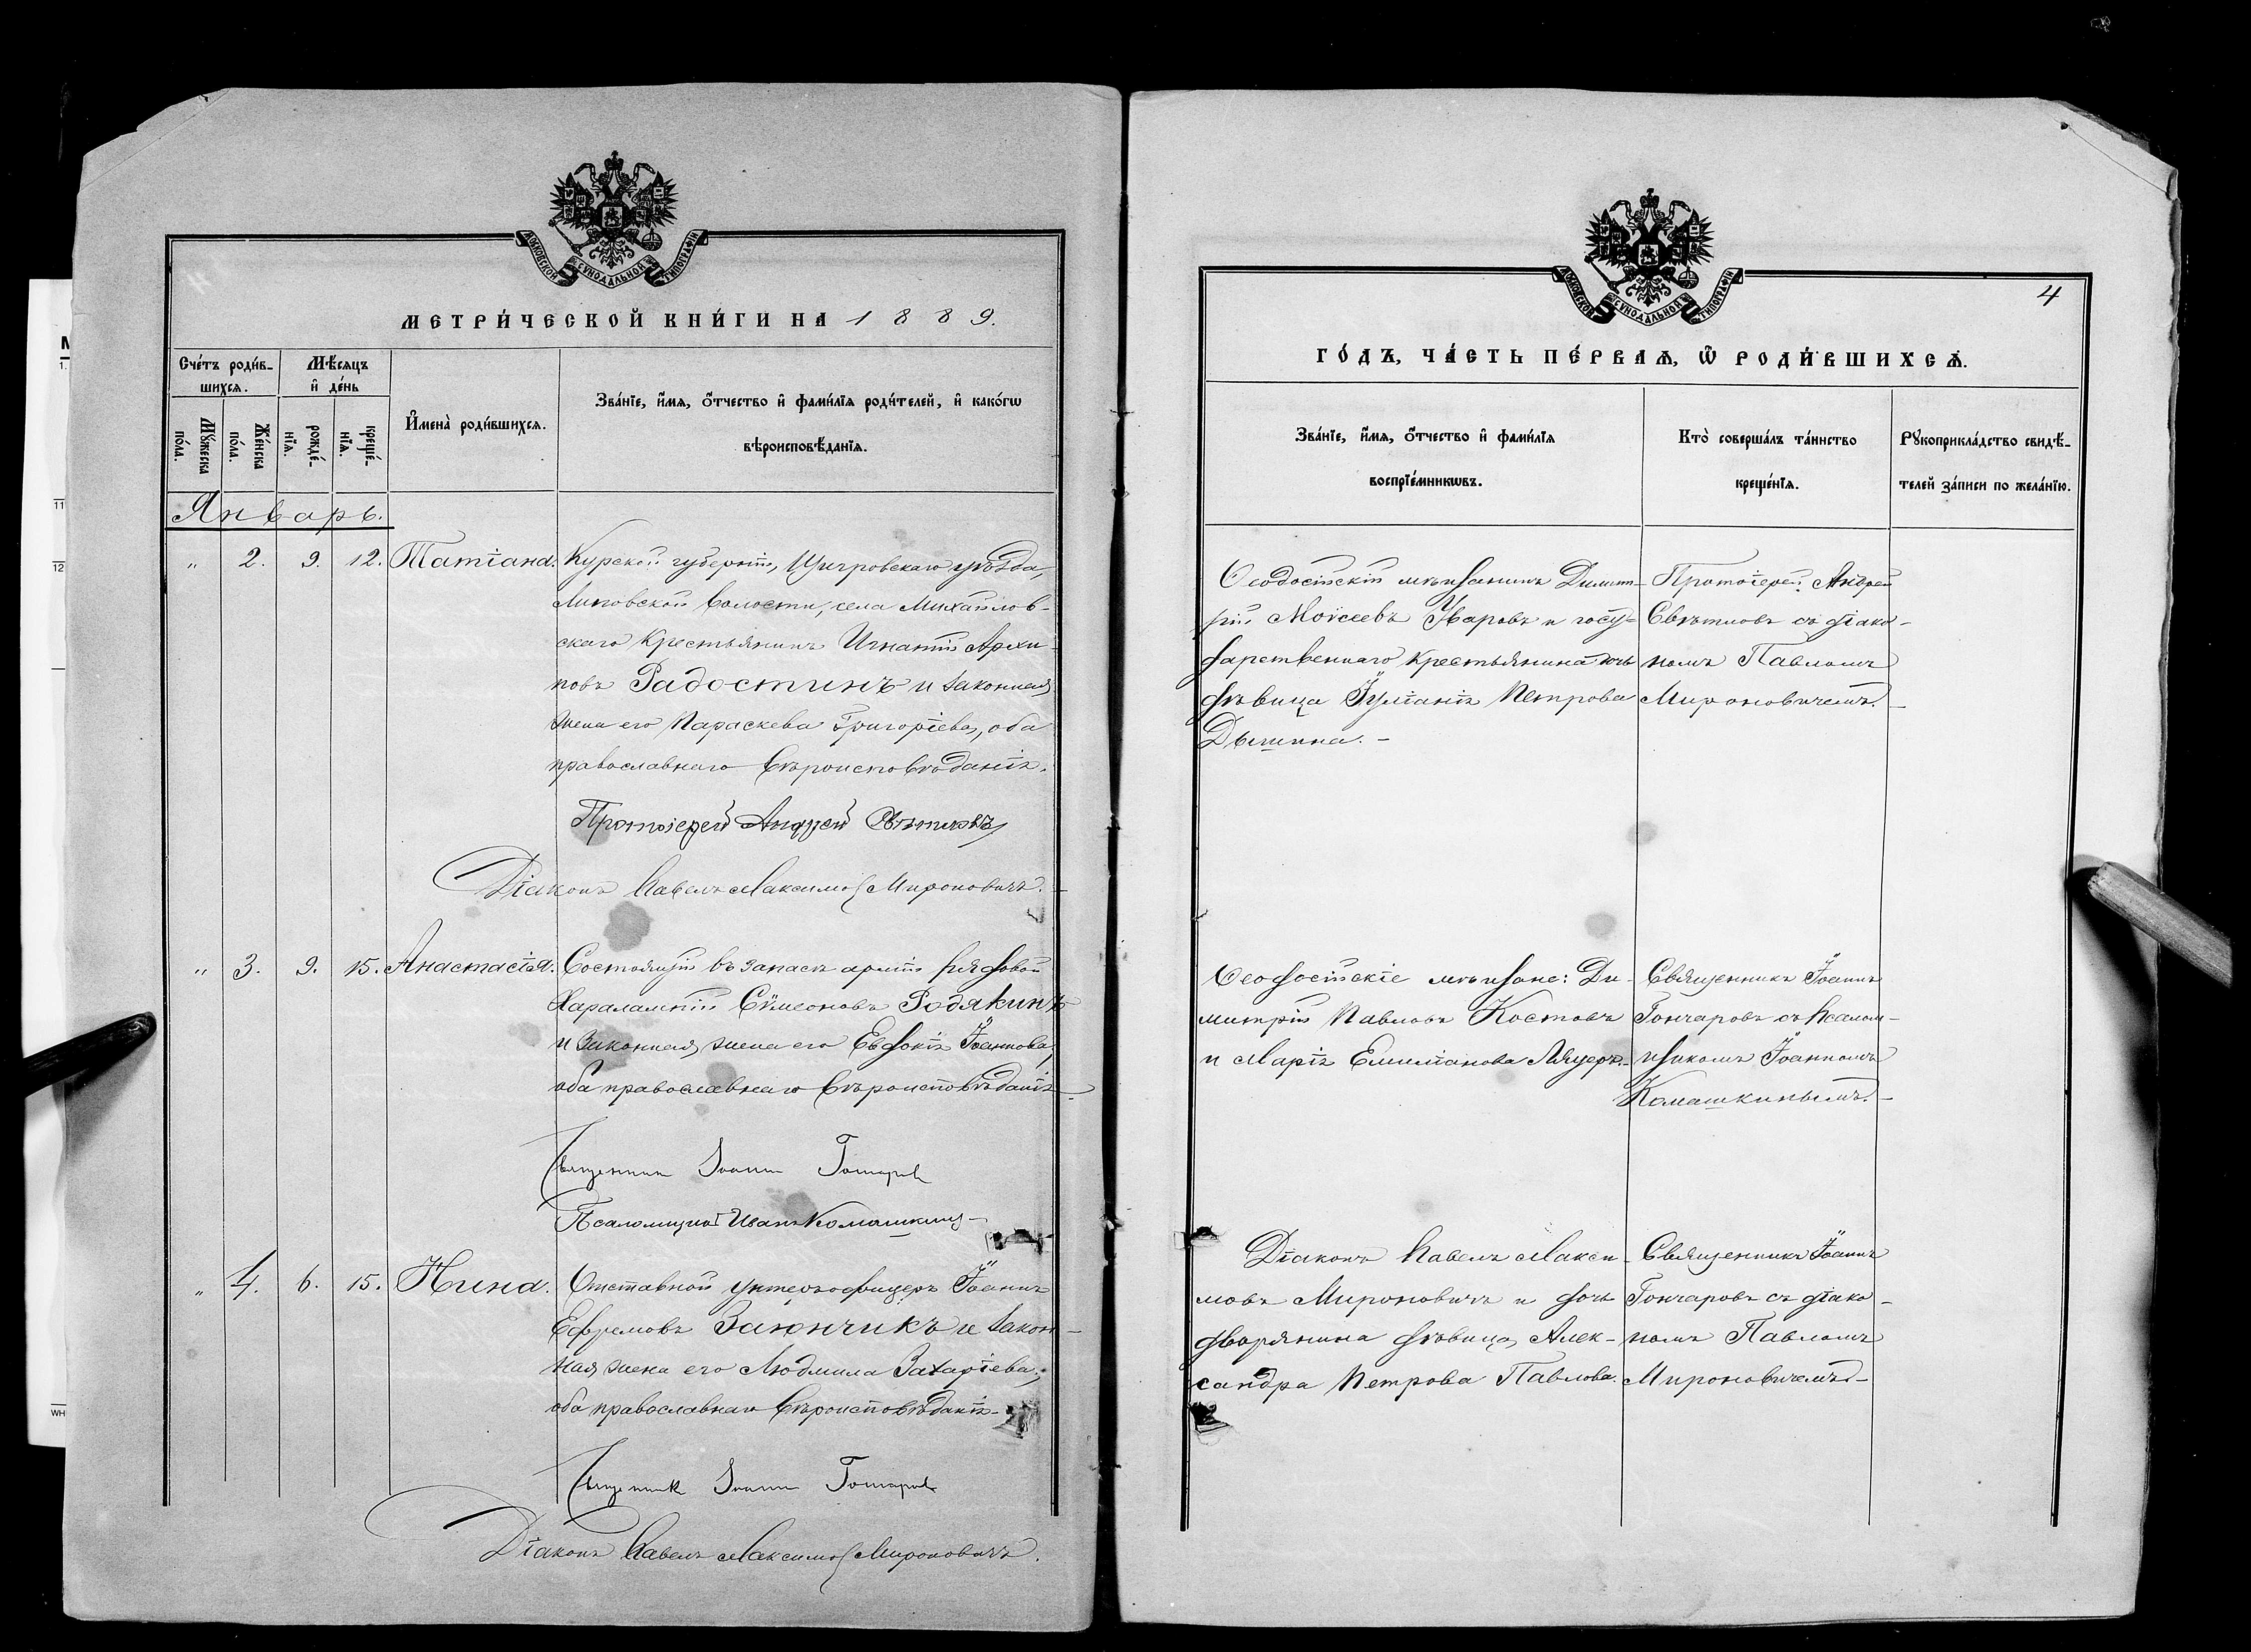 МОСКОВСКОЙ СѴНОДАЛЬНОЙ ТИПОГРАФІИ
МЕТРИ́ЧЕСКОЙ КНИ́ГИ НА 1889.
Сче́тъ роди́в-
шихся.
Мѣ́сяцъ
и҆ де́нь
Мꙋ́жеска
по́ла.
Же́нска
по́ла.
рожде́-
нїѧ.
креще́-
нїѧ.
И҆мена̀ роди́вшихсѧ.
Зва́нїе, и҆́мѧ, ѻ҆́тчество и҆ фами́лїѧ роди́телей, и҆ како́гѡ
вѣроисповѣ́данїѧ.
Январь.
" 2. 9. 12. Татіана. Курской губерніи, Щигровскаго уѣзда,
Липовской волости, села Михайлов-
скаго крестьянинъ Игнатій Архи-
повъ Радостинъ и законная
жена его Параскева Григоріева, оба
православнаго вѣроисповѣданія.
Протоіерей Андрей Свѣтловъ
Діаконъ Павелъ Максимов Мироновичъ.
" 3. 9. 15. Анастасія. Состоящій въ запасѣ арміи рядовой
Харалампій Сѵмеоновъ Родякинъ
и законная жена его Евдокія Іоаннова,
оба православнаго вѣроисповѣданія.
Священник Іоанн Гончаров
Псаломщикъ Иванъ Комашкинъ
" 4. 6. 15. Нина. Отставной унтеръ-офицеръ Іоаннъ
Ефремовъ Заюнчикъ и закон-
ная жена его Людмила Захаріева,
оба православнаго вѣроисповѣданія.
Священник Іоанн Гончаров
Діаконъ Павелъ Максимов Мироновичъ.
МОСКОВСКОЙ СѴНОДАЛЬНОЙ ТИПОГРАФІИ
4
ГО́ДЪ, ЧА́СТЬ ПЕ́РВАѦ, Ѡ҆ РОДИ́ВШИХСѦ.
Зва́нїе, и҆́мѧ, ѻ҆́тчество и҆ фами́лїѧ
воспрїе́мникѡвъ.
Кто̀ соверша́лъ та́инство
креще́нїѧ.
Рꙋкоприкла́дство свидѣ́-
телей за́писи по жела́нїю.
Ѳеодосійскій мѣщанинъ Димит-
рій Моисеевъ Уваровъ и госу-
дарственнаго крестьянина дочь
дѣвица Іуліанія Петрова
Дышина. -
Протоіерей Андрей
Свѣтловъ съ діако-
номъ Павломъ
Мироновичемъ.
Ѳеодосійскіе мѣщане: Ди-
митрій Павловъ Костовъ
и Марія Емиліанова
Священникъ Іоаннъ
Гончаровъ съ псалом-
щикомъ Іоанномъ
Комашкинымъ.
Діаконъ Павелъ Макси-
мовъ Мироновичъ и дочь
дворянина дѣвица Алек-
сандра Петрова Павлова.
Священникъ Іоаннъ
Гончаровъ съ діако-
номъ Павломъ
Мироновичемъ.